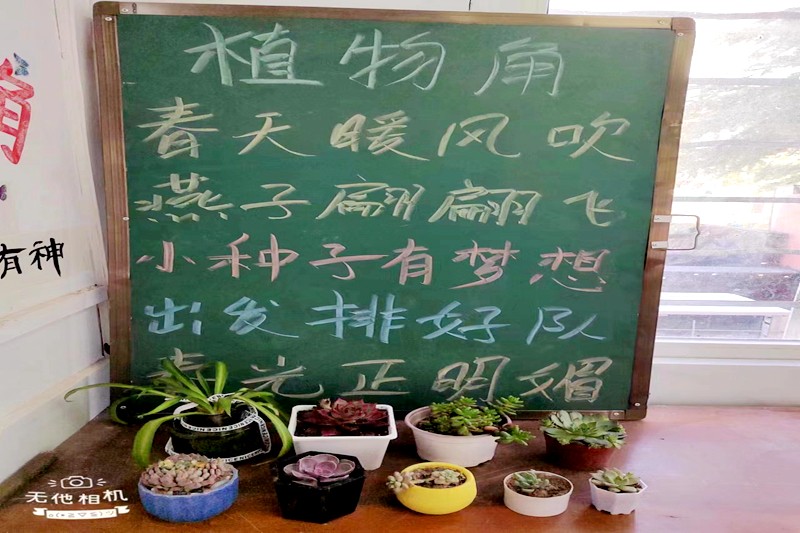 植物角
春天暖风吹
燕子翩翩飞
小种子有梦想
出发排好队
春光正明媚
有神
无他相机